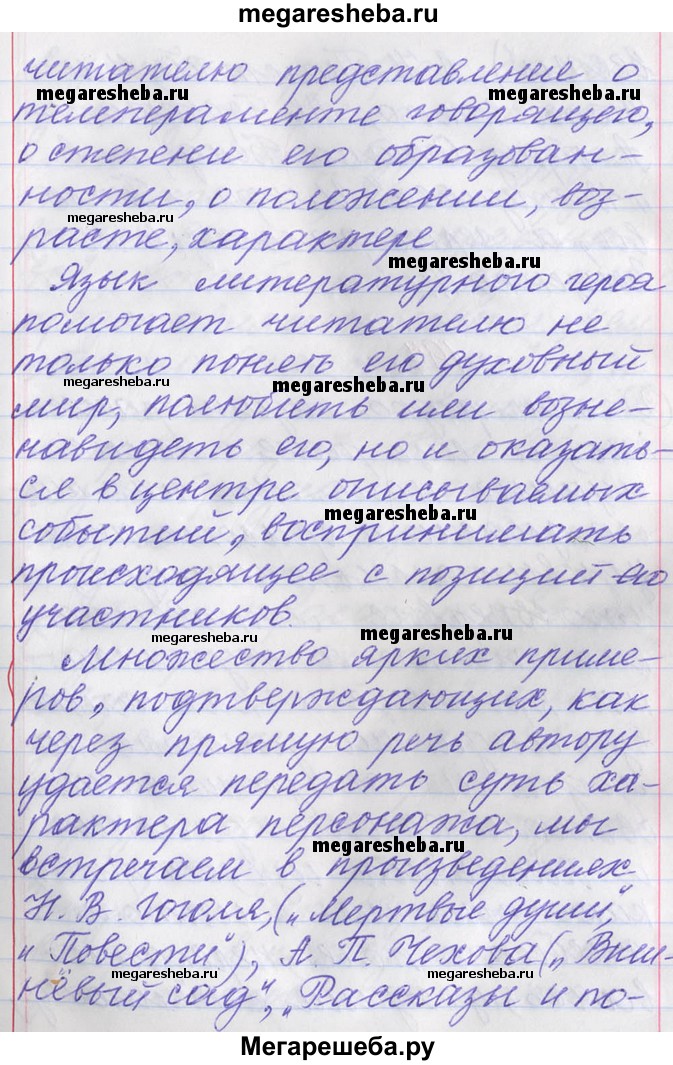 megaresheba.ru
читателю представление о
megaresheba.ru megaresheba.ru
темпераменте говорящего,
о степени его образован-
ности, о положении, воз-
megaresheba.ru
расте, характере
megaresheba.ru
Язык литературного героя
помогает читателю не
только понять его духовный
megaresheba.ru megaresheba.ru
мир, полюбить или возне-
навидеть его, но и оказать-
ся в центре описываемых
megaresheba.ru
событий, воспринимать
происходящее с позиций его
участников.
megaresheba.ru megaresheba.ru
Множество ярких приме-
ров, подтверждающих, как
через прямую речь автору
удается передать суть ха-
рактера персонажа, мы
megaresheba.ru
встречаем в произведениях
Н. В. Гоголя, („Мертвые души",
„Повести"), А. П. Чехова („Виш-
megaresheba.ru megaresheba.ru
нёвый сад", „Рассказы и по-
Мегарешеба.ру